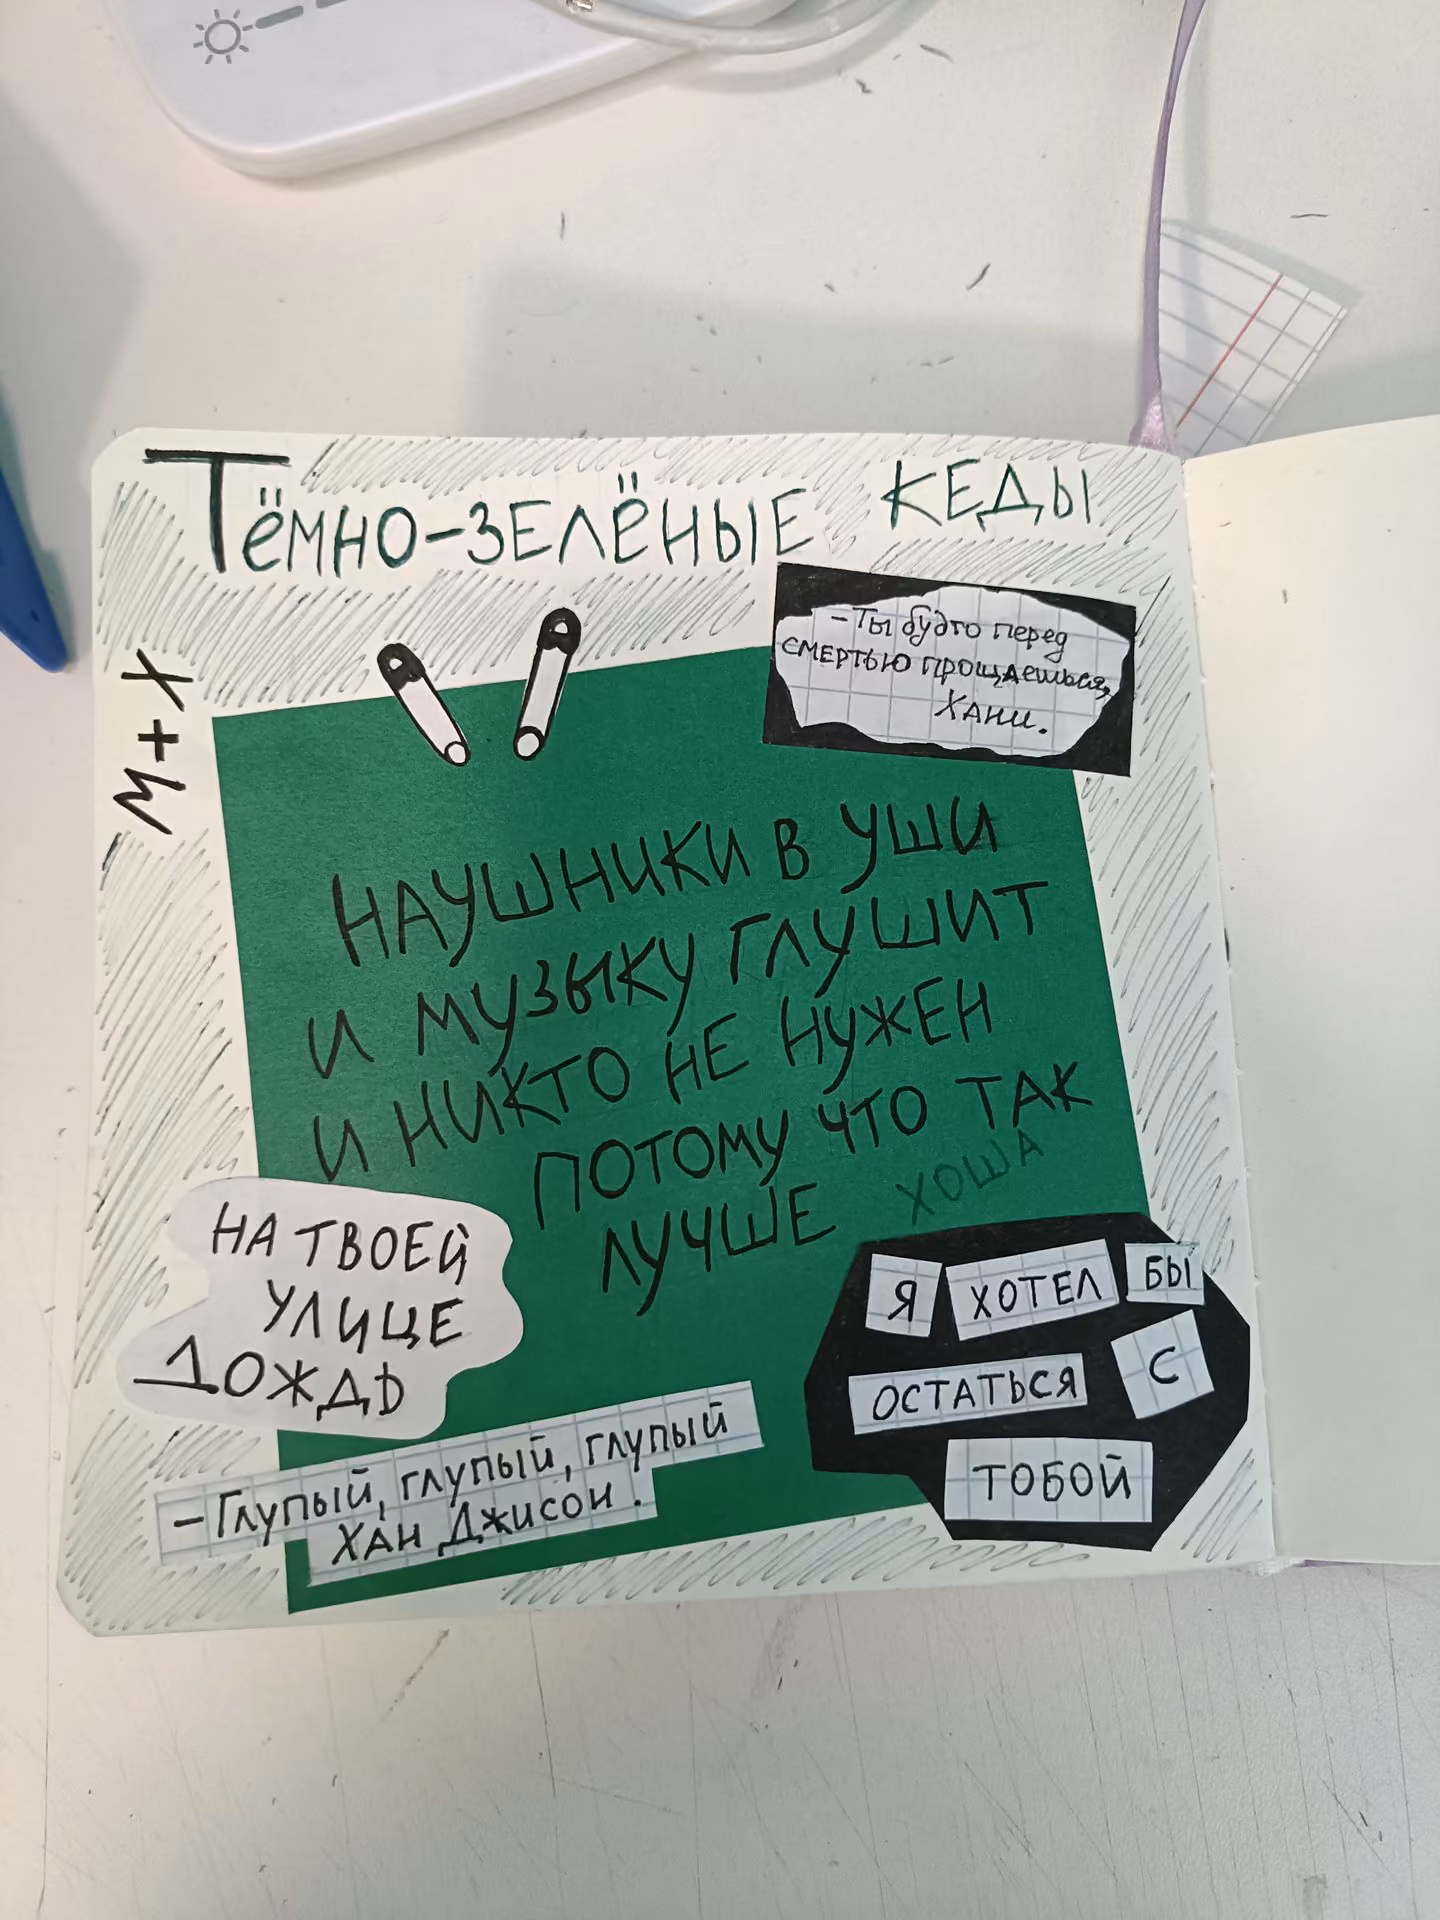 Тёмно-зелёные кеды
- Ты будто перед
смертью прощаешься,
Хани.
Х + М
НАУШНИКИ В УШИ
И МУЗЫКУ ГЛУШИТ
И НИКТО НЕ НУЖЕН
ПОТОМУ ЧТО ТАК
ЛУЧШЕ
ХОША
НА ТВОЕЙ
УЛИЦЕ
ДОЖДЬ
Я ХОТЕЛ БЫ
ОСТАТЬСЯ С
ТОБОЙ
- Глупый, глупый, глупый
Хан Джисон.